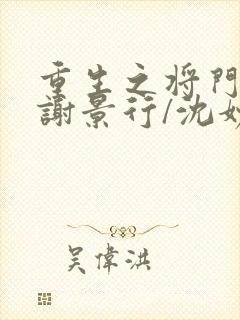 重生之将門
謝景行/沈妙
吴偉洪